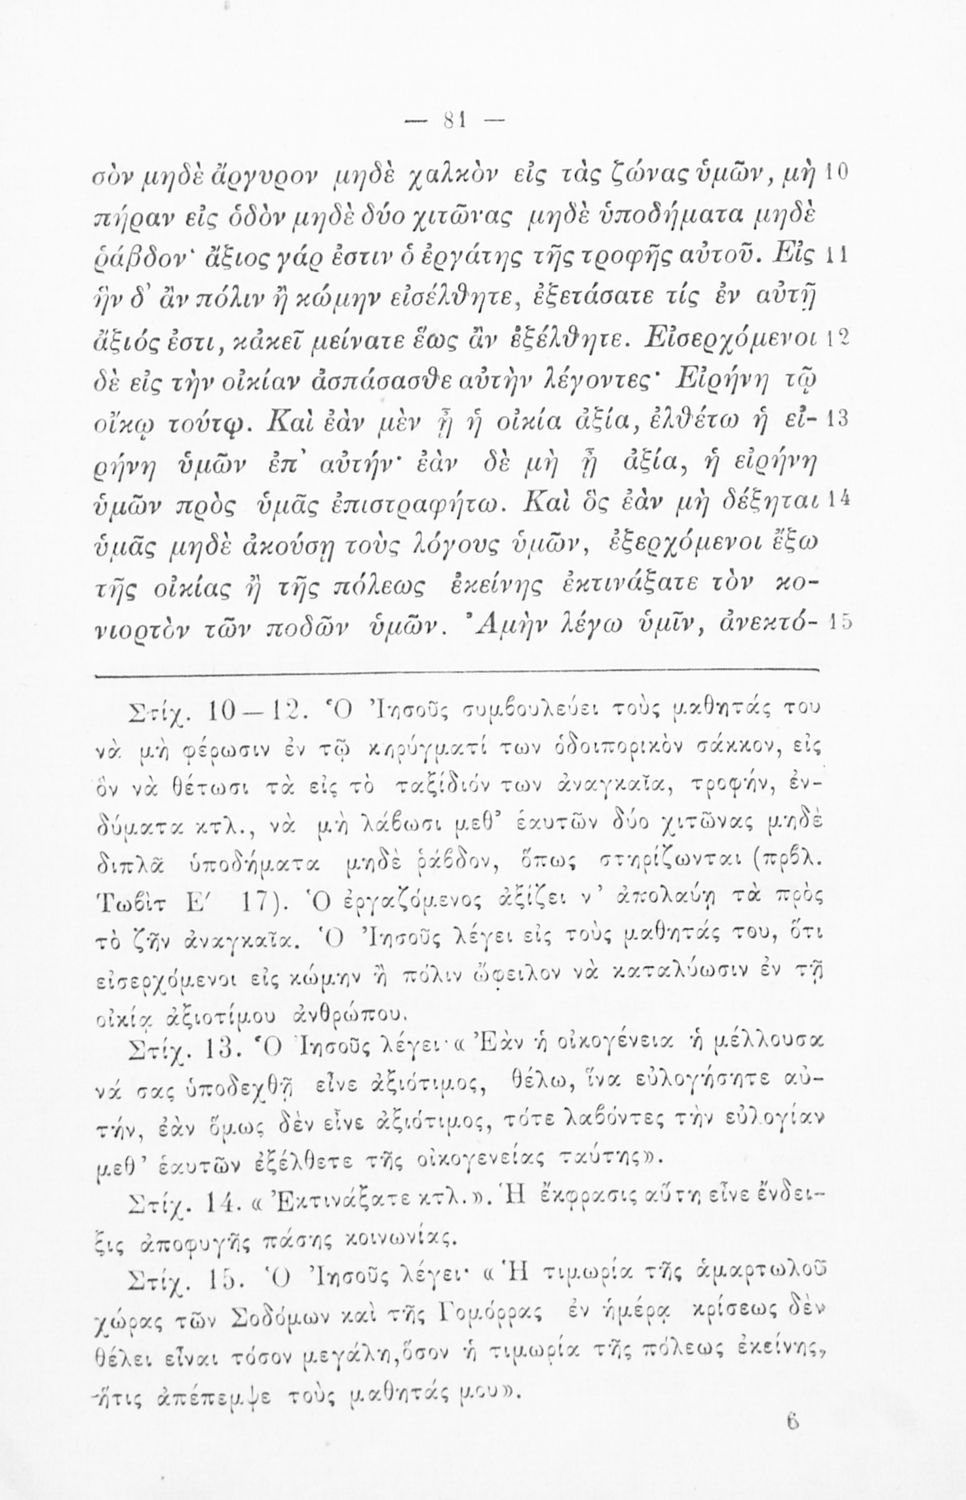 — 81 —
σὸν μηδὲ ἄργυρον μηδὲ χαλκὸν εἰς τὰς ζώνας ὑμῶν, μὴ 10
πήραν εἰς ὁδὸν μηδὲ δύο χιτῶνας μηδὲ ὑποδήματα μηδὲ
ῥάβδον· ἄξιος γάρ ἐστιν ὁ ἐργάτης τῆς τροφῆς αὐτοῦ. Εἰς 11
ἣν δ' ἂν πόλιν ἢ κώμην εἰσέλθητε, ἐξετάσατε τίς ἐν αὐτῇ
ἄξιός ἐστι, κἀκεῖ μείνατε ἕως ἂν ἐξέλθητε. Εἰσερχόμενοι 12
δὲ εἰς τὴν οἰκίαν ἀσπάσασθε αὐτὴν λέγοντες· Εἰρήνη τῷ
οἴκῳ τούτῳ. Καὶ ἐὰν μὲν ᾖ ἡ οἰκία ἀξία, ἐλθέτω ἡ εἰ- 13
ρήνη ὑμῶν ἐπ' αὐτήν· ἐὰν δὲ μὴ ᾖ ἀξία, ἡ εἰρήνη
ὑμῶν πρὸς ὑμᾶς ἐπιστραφήτω. Καὶ ὃς ἐὰν μὴ δέξηται 14
ὑμᾶς μηδὲ ἀκούσῃ τοὺς λόγους ὑμῶν, ἐξερχόμενοι ἔξω
τῆς οἰκίας ἢ τῆς πόλεως ἐκείνης ἐκτινάξατε τὸν κο-
νιορτὸν τῶν ποδῶν ὑμῶν. Ἀμὴν λέγω ὑμῖν, ἀνεκτό- 15
Στίχ. 10—12. Ὁ Ἰησοῦς συμβουλεύει τοὺς μαθητάς του
νὰ μὴ φέρωσιν ἐν τῷ κηρύγματί των ὁδοιπορικὸν σάκκον, εἰς
ὃν νὰ θέτωσι τὰ εἰς τὸ ταξίδιόν των ἀναγκαῖα, τροφήν, ἐν-
δύματα κτλ., νὰ μὴ λάβωσι μεθ' ἑαυτῶν δύο χιτῶνας μηδὲ
διπλᾶ ὑποδήματα μηδὲ ῥάβδον, ὅπως στηρίζωνται (πρβλ.
Τωβὶτ Ε' 17). Ὁ ἐργαζόμενος ἀξίζει ν' ἀπολαύῃ τὰ πρὸς
τὸ ζῆν ἀναγκαῖα. Ὁ Ἰησοῦς λέγει εἰς τοὺς μαθητάς του, ὅτι
εἰσερχόμενοι εἰς κώμην ἢ πόλιν ὤφειλον νὰ καταλύωσιν ἐν τῇ
οἰκίᾳ ἀξιοτίμου ἀνθρώπου.
Στίχ. 13. Ὁ Ἰησοῦς λέγει· « Ἐὰν ἡ οἰκογένεια ἡ μέλλουσα
νά σας ὑποδεχθῇ εἶνε ἀξιότιμος, θέλω, ἵνα εὐλογήσητε αὐ-
τήν, ἐὰν ὅμως δὲν εἶνε ἀξιότιμος, τότε λαβόντες τὴν εὐλογίαν
μεθ' ἑαυτῶν ἐξέλθετε τῆς οἰκογενείας ταύτης».
Στίχ. 14. « Ἐκτινάξατε κτλ.». Ἡ ἔκφρασις αὕτη εἶνε ἔνδει-
ξις ἀποφυγῆς πάσης κοινωνίας.
Στίχ. 15. Ὁ Ἰησοῦς λέγει· « Ἡ τιμωρία τῆς ἁμαρτωλοῦ
χώρας τῶν Σοδόμων καὶ τῆς Γομόρρας ἐν ἡμέρᾳ κρίσεως δὲν
θέλει εἶναι τόσον μεγάλη, ὅσον ἡ τιμωρία τῆς πόλεως ἐκείνης,
ἥτις ἀπέπεμψε τοὺς μαθητάς μου».
6